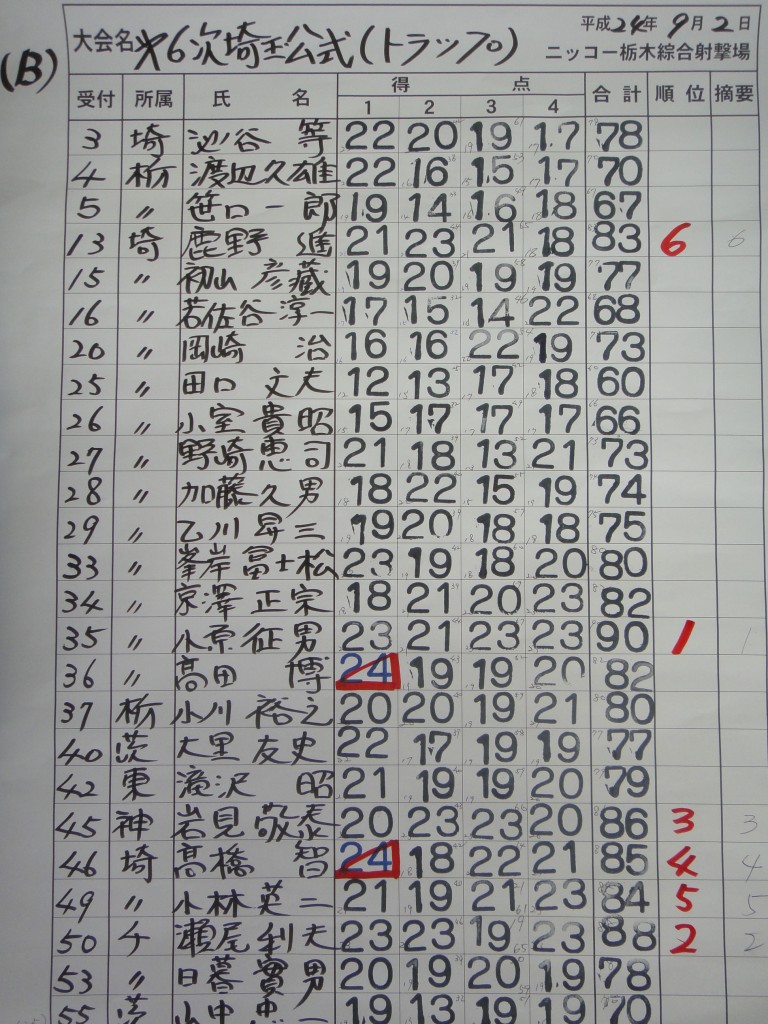 平成24年9月2日
大会名 第6次埼玉公式(トラップ) ニッコー栃木綜合射撃場
(B)
受付 所属 氏名 得点 合計 順位 摘要
1 2 3 4
3 埼 谷 等 22 20 19 17 78
4 栃 渡辺久雄 22 16 15 17 70
5 〃 笹口一郎 19 14 16 18 67
13 埼 鹿野 進 21 23 21 18 83 6 6
15 〃 初山彦蔵 19 20 19 19 77
16 〃 若佐谷淳一 17 15 14 22 68
20 〃 岡崎 治 16 16 22 19 73
25 〃 田口文夫 12 13 17 18 60
26 〃 小室貴昭 15 17 17 17 66
27 〃 野崎恵司 21 18 13 21 73
28 〃 加藤久男 18 22 15 19 74
29 〃 乙川昇三 19 20 18 18 75
33 〃 峯岸冨士松 23 19 18 20 80
34 〃 京澤正宗 18 21 20 23 82
35 〃 小原征男 23 21 23 23 90 1 1
36 〃 高田 博 24 19 19 20 82
37 栃 小川裕之 20 20 19 21 80
40 茨 大里友史 22 17 19 19 77
42 東 滝沢 昭 21 19 19 20 79
45 神 岩見敬泰 20 23 23 20 86 3 3
46 埼 高橋 智 24 18 22 21 85 4 4
49 〃 小林英二 21 19 21 23 84 5 5
50 千 瀬尾利夫 23 23 19 23 88 2 2
53 〃 日暮實男 20 19 20 19 78
55 茨 山中忠一 19 13 19 19 70